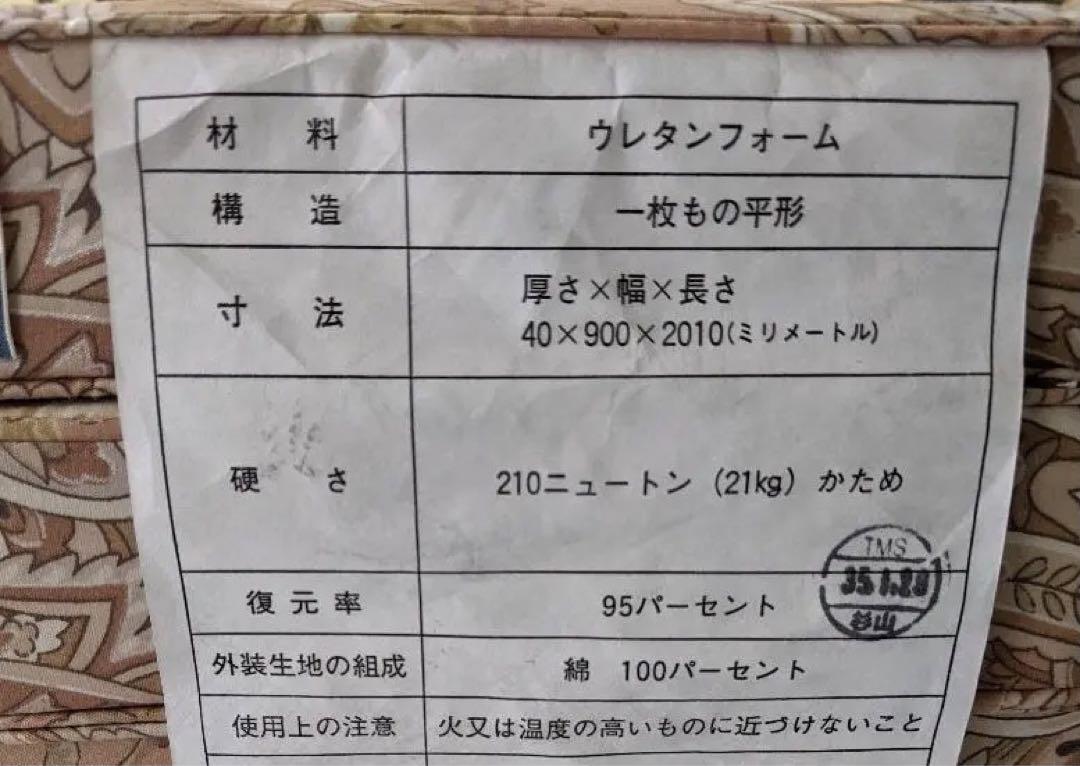 材料 ウレタンフォーム
構造 一枚もの平形
寸法 厚さ×幅×長さ
40×900×2010(ミリメートル)
硬さ 210ニュートン (21kg) かため
TMS
杉山
復元率 95パーセント
外装生地の組成 綿 100パーセント
使用上の注意 火又は温度の高いものに近づけないこと